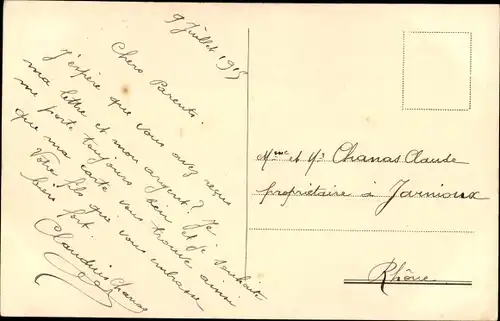 9 Juillet 1915
Chers Parents.
J'espère que vous avez reçus
ma lettre et mon argent? Je
me porte toujours bien et je souhaite
que ma carte vous trouve ainsi
Votre fils que vous embrasse
bien fort.
Claudius Chanas
Mme et Mr Chanas Claude
propriétaire à Jarnioux
Rhône